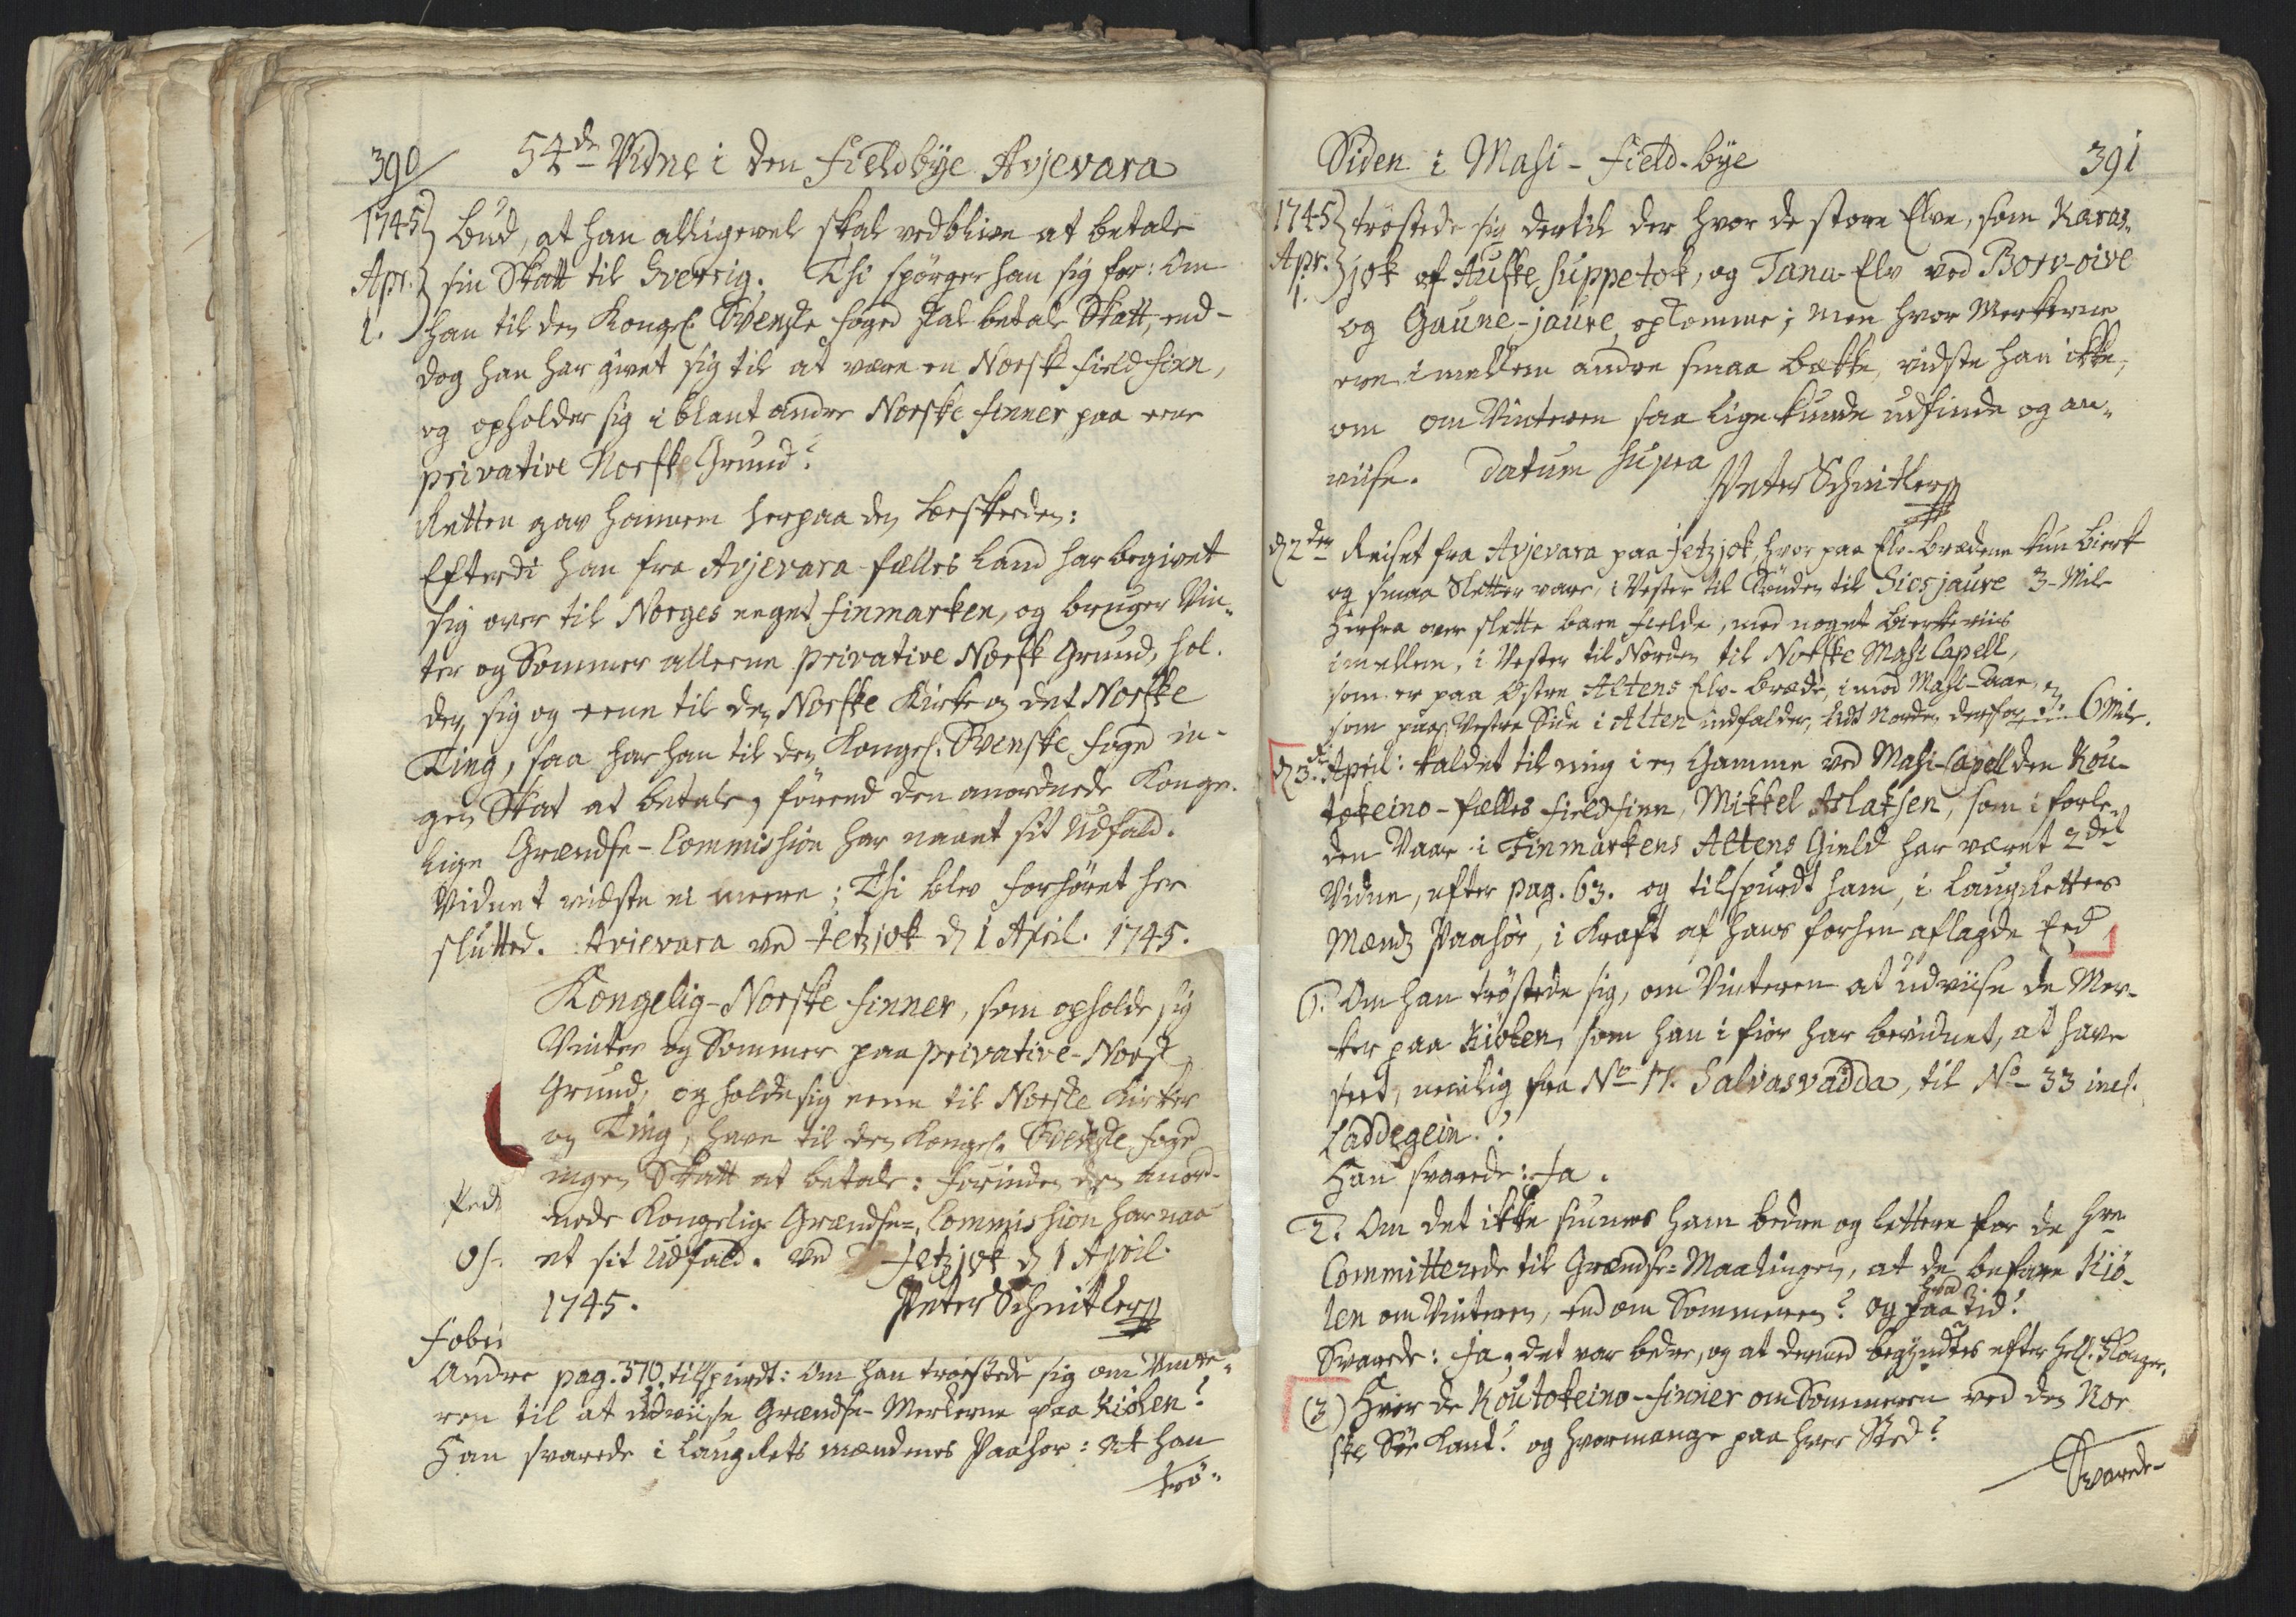 390
54de Vidne i den Fieldbÿe Avjevara
1745
Apr.
1.
Bud, at han alligevel skal vedblive at betale
sin Skatt til Sverrig. Thi spörger han sig for: Om
han til den Kongel. Svenske foged skal betale Skatt, end-
dog han har givet sig til at være en Norsk field finn,
og opholder sig iblant andre Norske finner paa een
privative Norske Grund?
Retten gav hannem herpaa den beskeeden:
Efterdi han fra Avjevara-fælles Land har begivet
sig over til Norges eeget Finmarken, og bruger Vin-
ter og Sommer alleene privative Norsk Grund, hol-
der sig og eene til den Norske Kirke og det Norske
Ting, saa har han til den Kongel. Svenske foged in-
gen Skat at betale, förend den anordnede Konge-
lige Grændse-Commission har naaet sit Udfald.
Vidnet vidste ei meere; Thi blev forhöret her
sluttet. Avievara ved Jetzjok d. 1 April. 1745.
Kongelig-Norske finner, som opholde sig
Vinter og Sommer paa privative-Norsk
Grund, og holde sig eene til Norske Kirker
og Ting, have til den Kongel. Svenske foged
ingen Skatt at betale: forinden den anord-
nede Kongelige Grændse-Commission har naa-
et sit Udfald. ved Jetzjok d. 1 April.
1745. Peter Schnitler
Andre pag. 370. tilspurdt: Om han tröstede sig om Vinte-
ren til at udviise Grændse-Merkerne paa Kiölen?
Han svarede i Laugrets mændenes Paahör: At han
trö-
Siden i Masi-Field-bÿe
391
1745
Apr.
1.
tröstede sig dertil der hvor de store Elve, som Karas-
jok af Auske Suppetok, og Tana-Elv ved Borv-oive
og Gaune-jaure opkomme; Men hvor Merkerne
ere imellem andre smaa bække, vidste han ikke,
om om Vinteren saa lige kunde udfinde og an-
viise. Datum Supra
Peter Schnitler
d. 2den Reiset fra Avjevara paa Jetzjok, hvor paa Elv-bredene kun bierk
og smaa Sletter vare, i Vester til Sönden til Siosjaure 3-Mile
Herfra over slette bare fielde, med noget bierkeriis
imellem, i Vester til Norden til Norske Masi Capell,
som er paa östre Altens Elv-bredde, imod Masi-
som paa Vestre Side i Alten indfalder, lidt Norden derfor 6 Mile.
d. 3die April: kaldet til mig i en Gamme ved Masi-Capell den Kou-
tokeino-fælles fieldfinn, Mikkel Aslaksen, som i forle-
den Vaar i Finmarkens Altens Gield har været 2det
Vidne, efter pag. 63. og tilspurdt ham, i Laugrettes
Mændz Paahör, i Kraft af hans forhen aflagde Eed,
1. Om han tröstede sig, om Vinteren at udviise de Mer-
ker paa Kiölen, som han i fior har bevidnet, at have
seet, nemlig fra No 17. Salvasvadda, til No 33 incl.
Caddegein?
Han svarede: Ja.
2. Om det ikke siunes ham bedre og lettere for de Hrr
Committerede til Grændse-Maalingen, at de befare Kiö-
len om Vinteren, end om Sommeren? og paa hvad Tid?
Svarede: Ja; det var bedre, og at dermed begyndtes efter Hell. 3 Konger.
(3) Hvor de Koutokeino-finner om Sommeren ved den Nor
ske Söe Kant? og hvormange paa hver Sted?
Svarede-